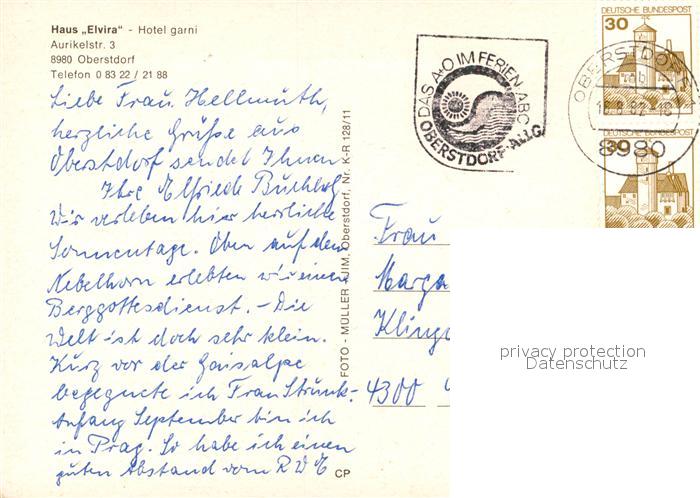 Haus „Elvira" - Hotel garni
Aurikelstr. 3
8980 Oberstdorf
Telefon 0 83 22 / 21 88
Liebe Frau Hellmuth,
herzliche Grüße aus
Oberstdorf sendet Ihnen
Ihre Elfriede Buchholz
Wir verleben hier herrliche
Sonnentage. Oben auf dem
Nebelhorn erlebten wir einen
Berggottesdienst. – Die
Welt ist doch sehr klein.
Kurz vor der Gaisalpe
begegnete ich Frau Strunk.
Anfang September bin ich
in Prag. So habe ich einen
guten Abstand vom RWE
CP
FOTO - MÜLLER »JIM, Oberstdorf, Nr. K-R 128/11
DAS A+O IM FERIEN ABC
OBERSTDORF-ALLG
DEUTSCHE BUNDESPOST
30
OBERSTDORF
b
8980
30
Frau
Marga
Klinge
4300
privacy protection
Datenschutz